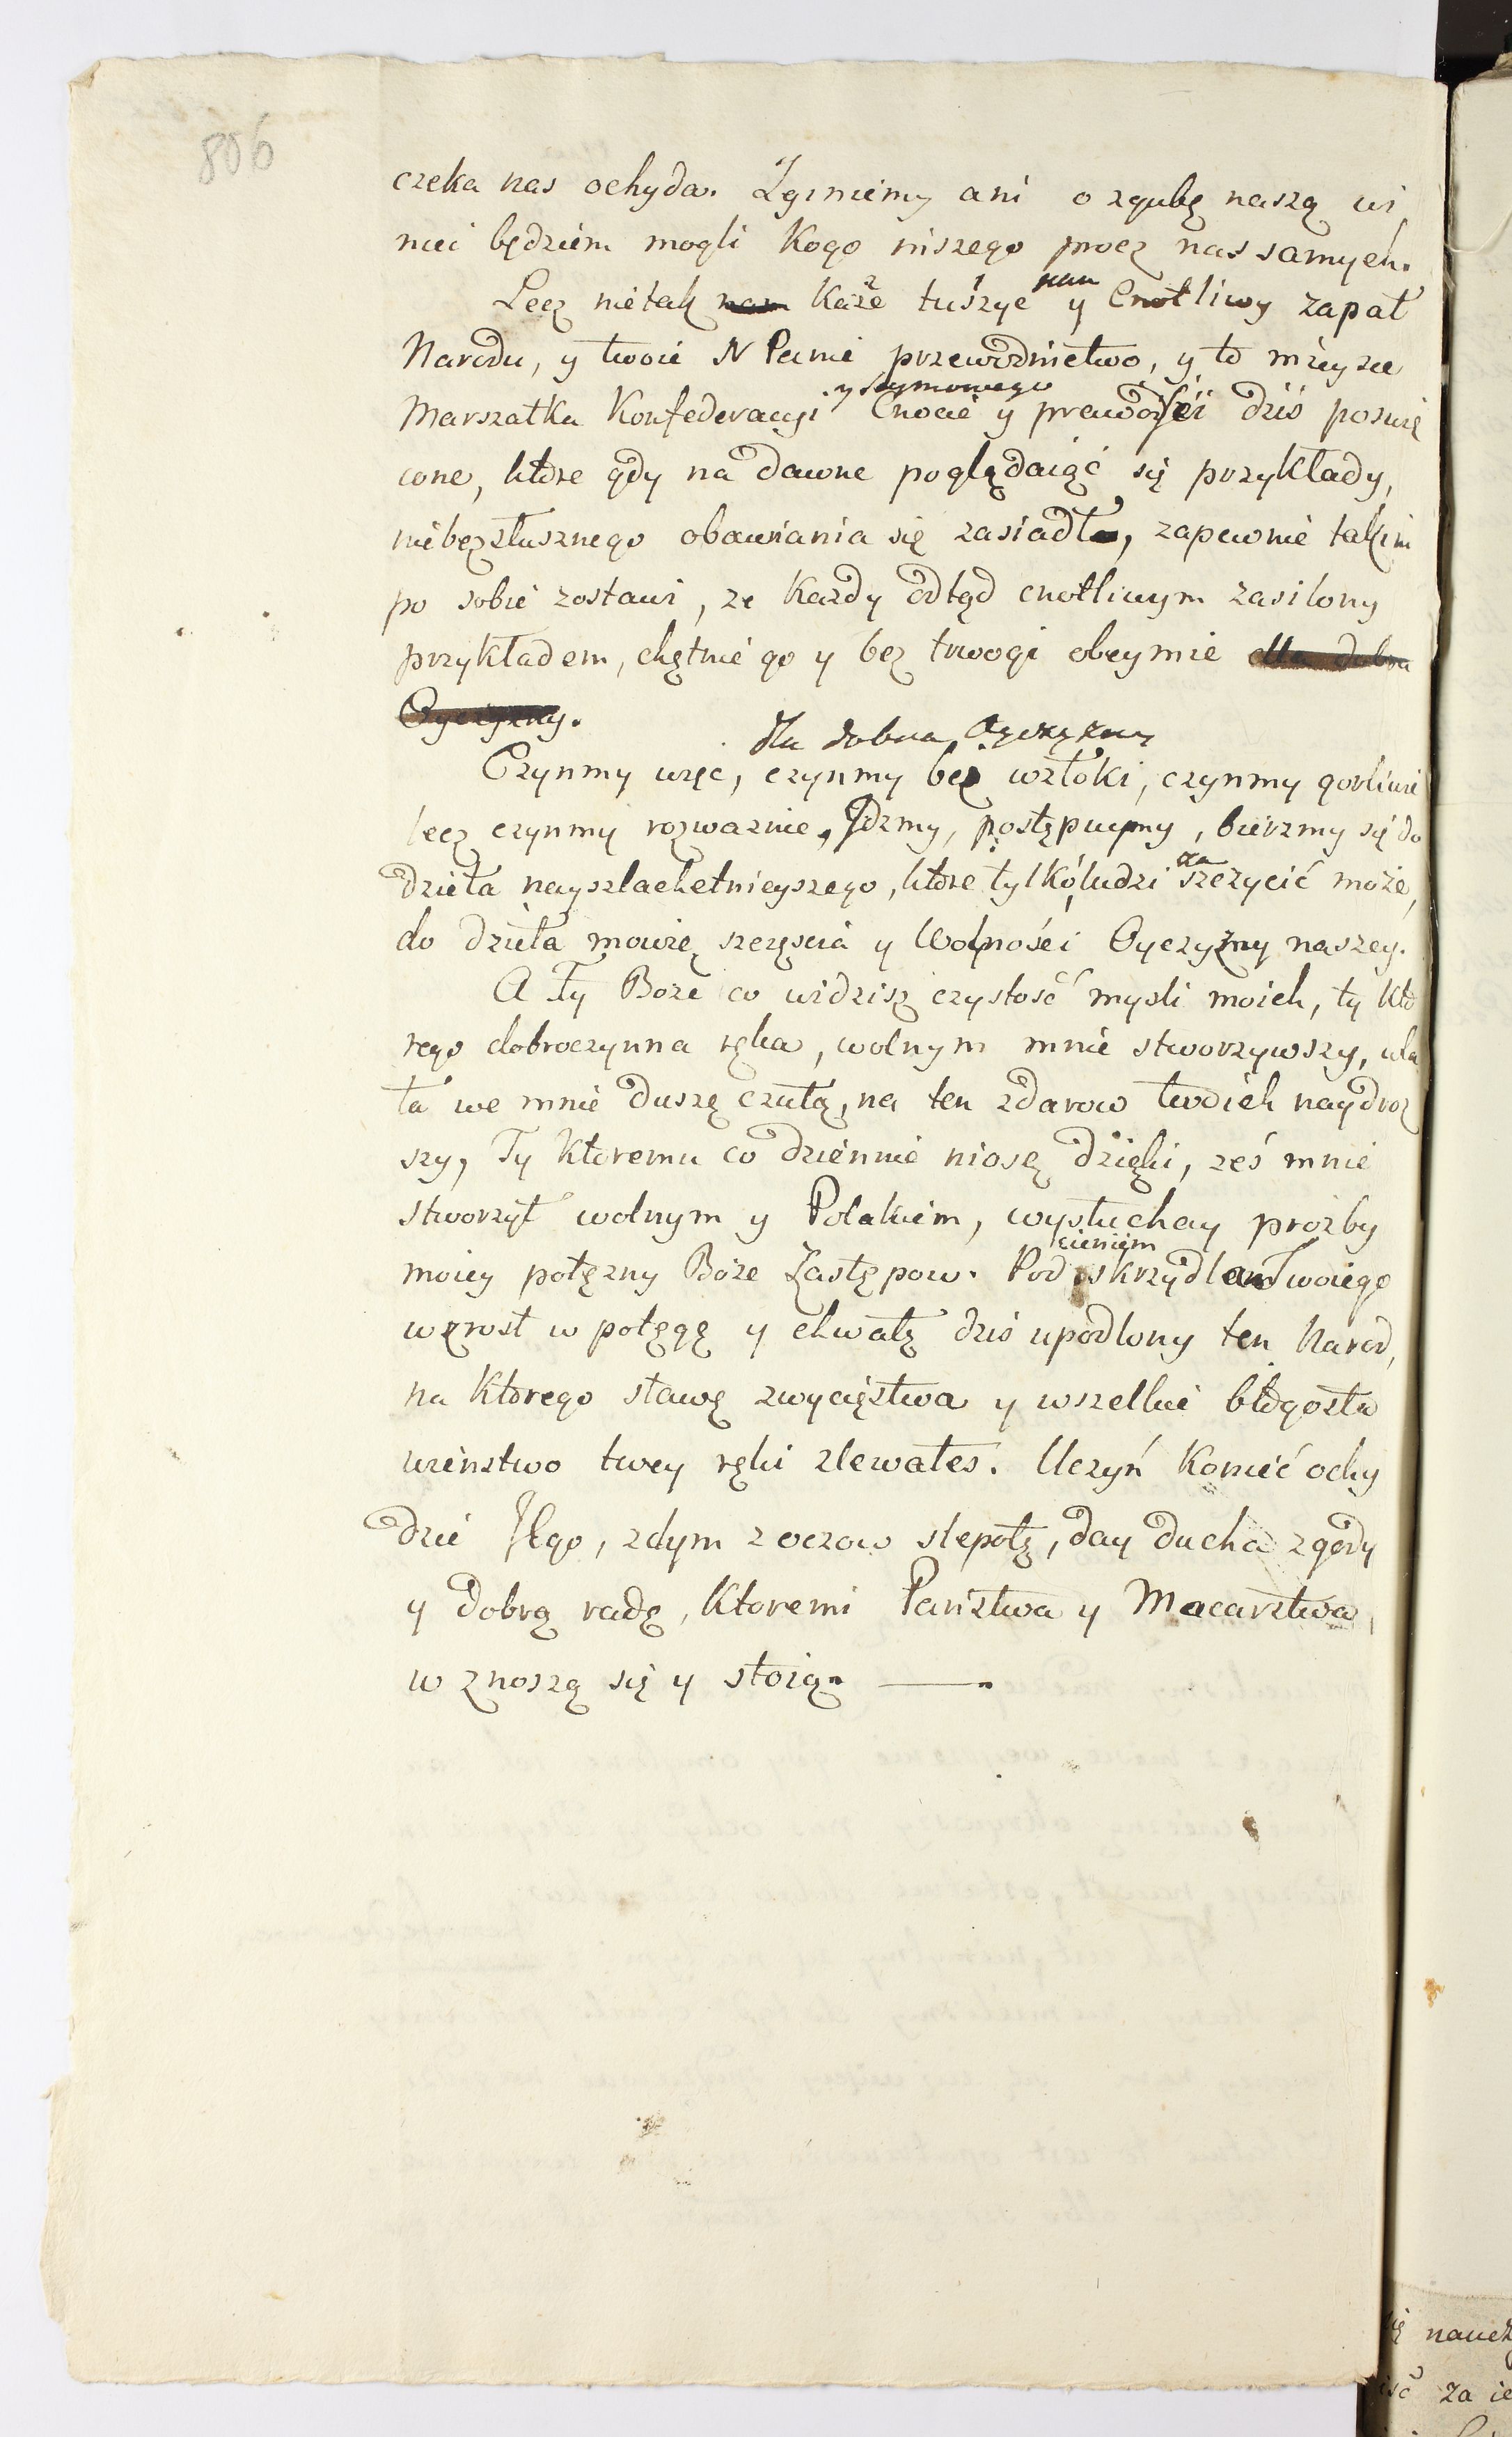 806
czeka nas ochyda. Zginiemy ani o zgubę naszą wi
nić będziem mogli kogo niszego procz nas samych.
nam
Lecz nietak nam każe 2 tuszyc 1 y Cnotliwy zapał
Narodu, y twoie N Panie przewodnictwo, y to mieysce
y seymowego
Marszałka Konfederacyi Cnocie y prawości dziś poswię
cone, ktore gdy na dawne poglądaiąć się przykłady,
niebezsłusznego obawiania się zasiadł, zapewnie takim
po sobie zostawi, ze każdy odtąd cnotliwym zasilony
przykładem, chętnie go y bez trwogi obeymie dla dobra
Oyczyzny.
dla dobra Oyczyzny
Czynmy więc, czynmy bez wzłoki, czynmy gorliwie
lecz czynmy rozwaznie, Jdzmy, postępuymy, bierzmy się do
dzieła nayszlachetnieyszego, ktore tylko ludzi szczycić może,
do dzieła mowię szczęscia y Wolności Oyczyzny naszey.
A Ty Boże co widzisz czystość mysli moich, ty kto
rego dobroczynna ręka, wolnym mnie stworzywszy, wla
ła we mnie duszę czułą, na ten zdarow twoich naydroż
szy, Ty ktoremu co dziennie niosę dzięki, ześ mnie
stworzył wolnym y Polakiem, wysłuchay prozby
cieniem
moiey potęzny Boże Zastępow. Pod skrzydla Twoiego
wzrost w potęgę y chwałę dziś upodlony ten Narod,
na ktorego sławę zwycięztwa y wszelkie błogosła
wieństwo twey ręki zlewałes. Uczyń konieć ochy
dzie Jego, zdym z oczow slepotę, day ducha zgody
y dobrą radę, ktoremi Państwa y Mocarstwa
w znoszą się y stoią. —
naucz
za ie